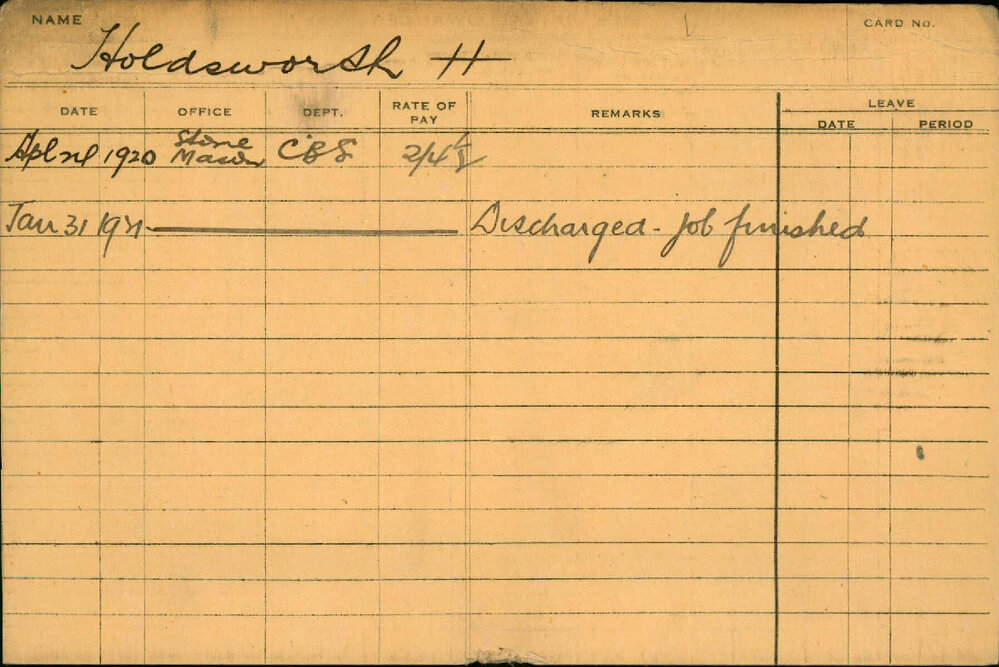 NAME
CARD NO.
Holdsworth H
DATE OFFICE DEPT. RATE OF PAY REMARKS LEAVE
DATE PERIOD
Apl 1920 Stone Mason CBS 2/4½
Jan 31 1921 Discharged - Job finished